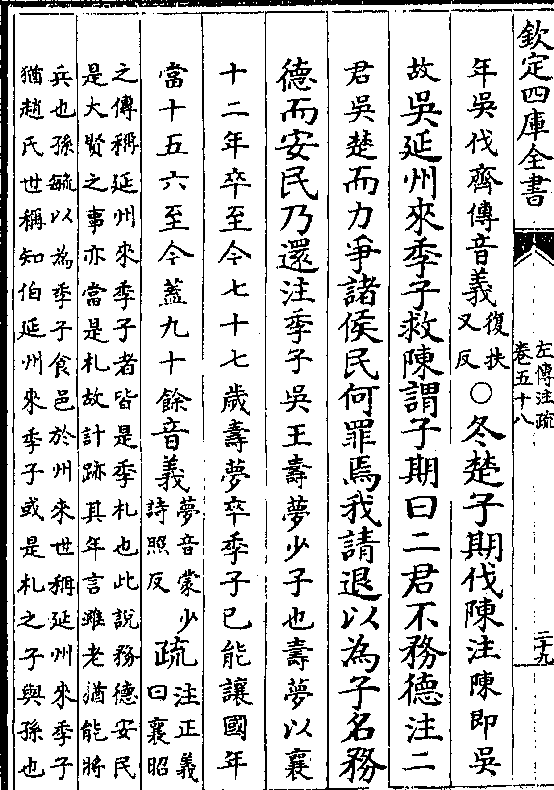 欽定四庫全書
左傳注疏
卷五十八
二十九
年吳伐齊傳音義復扶
又反〇冬楚子期伐陳注陳即吳
故吳延州來季子救陳謂子期曰二君不務德注二
君吳楚而力爭諸侯民何罪焉我請退以為子名務
德而安民乃還注季子吳王壽夢少子也壽夢以襄
十二年卒至今七十七歲壽夢卒季子已能讓國年
當十五六至今蓋九十餘音義夢音蒙少
詩照反疏注正義
曰襄昭
之傳稱延州來季子者皆是季札也此說務德安民
是大賢之事亦當是札故計跡其年言雖老猶能將
兵也孫毓以為季子食邑於州來世稱延州來季子
猶趙氏世稱知伯延州來季子或是札之子與孫也